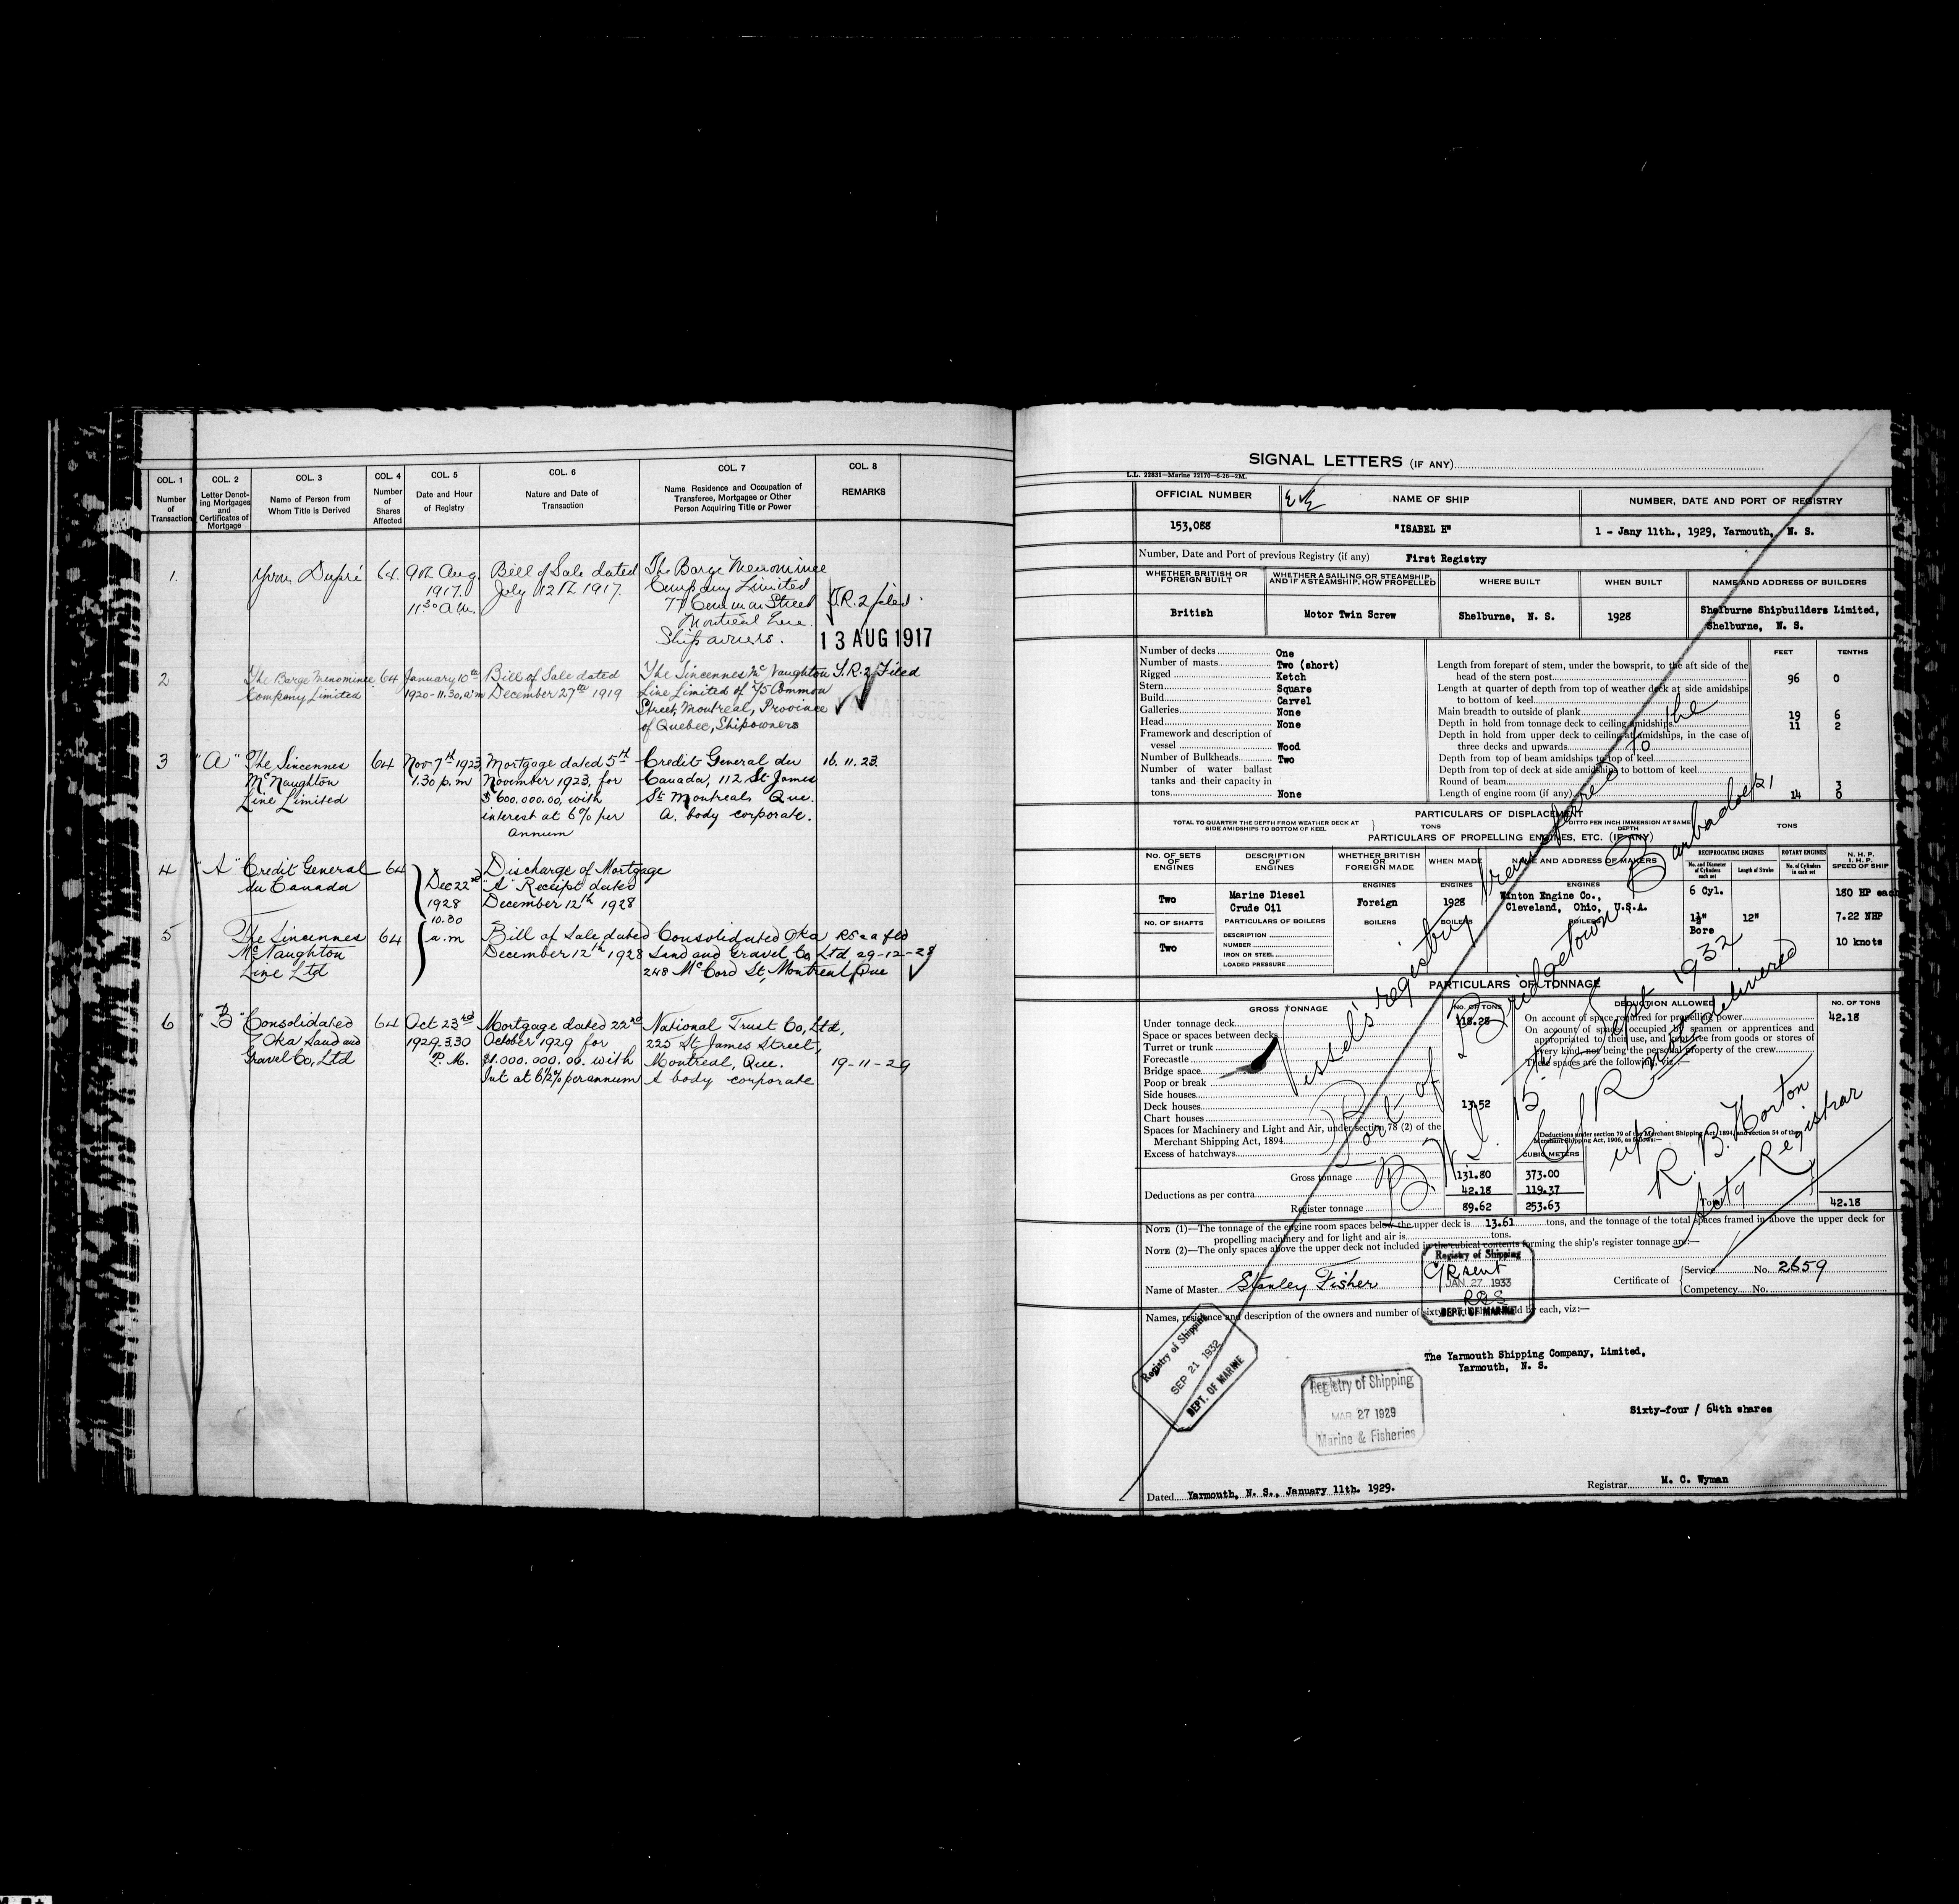 COL. 1 COL. 2 COL. 3 COL. 4 COL. 5 COL. 6 COL. 7 COL. 8
Number of Transaction
Letter Denoting Mortgages and Certificates of Mortgage
Name of Person from Whom Title is Derived
Number of Shares Affected
Date and Hour of Registry
Nature and Date of Transaction
Name Residence and Occupation of Transferee, Mortgagee or Other Person Acquiring Title or Power
REMARKS
1. Yvon Dupré 64. 9th Aug. Bill of Sale dated The Barge Menominee
1917. July 12th 1917. Company Limited
11 30 a.m. Common Street
Montreal Que.
Ship owners.
13 AUG 1917
2 The Barge Menominee 64 January 10th Bill of Sale dated The Sincennes McNaughton T.R.2 Filed
Company Limited 1920-11.30, a.m December 27th 1919 Line Limited of 75 Common
Street, Montreal, Province
of Quebec, Shipowners
3 "A" The Sincennes 64 Nov 7th 1923 Mortgage dated 5th Credit General du 16.11.23.
McNaughton 1.30 p.m November 1923, for Canada, 112 St James
Line Limited $600.000.00, with St Montreal Que.
interest at 6% per A. body corporate.
annum
4 "A" Credit General 64 Discharge of Mortgage
du Canada Dec 22nd "A" Receipt dated
1928 December 12th 1928
10.30
5 The Sincennes 64 a.m Bill of Sale dated Consolidated Oka
McNaughton December 12th 1928 Sand and Gravel Co, Ltd 29-12-28
Line Ltd 248 McCord St, Montreal, Que
6 "B" Consolidated 64 Oct 23rd Mortgage dated 22nd National Trust Co, Ltd,
Oka Sand and 1929-3.30 October 1929 for 225 St James Street,
Gravel Co, Ltd P.M. $1.000.000.00. with Montreal, Que. 19-11-29
Int at 6 1/2% per annum A body corporate
SIGNAL LETTERS (IF ANY)
L.L. 22831—Marine 22170—6-26—2M.
OFFICIAL NUMBER NAME OF SHIP NUMBER, DATE AND PORT OF REGISTRY
153,088 "ISABEL H" 1 - Jany 11th., 1929, Yarmouth, N. S.
Number, Date and Port of previous Registry (if any) First Registry
WHETHER BRITISH OR FOREIGN BUILT
WHETHER A SAILING OR STEAMSHIP, AND IF A STEAMSHIP, HOW PROPELLED
WHERE BUILT WHEN BUILT NAME AND ADDRESS OF BUILDERS
British Motor Twin Screw Shelburne, N. S. 1928 Shelburne Shipbuilders Limited,
Shelburne, N. S.
FEET TENTHS
Number of decks One
Number of masts Two (short)
Rigged Ketch
Stern Square
Build Carvel
Galleries None
Head None
Framework and description of
vessel Wood
Number of Bulkheads Two
Number of water ballast
tanks and their capacity in
tons None
Length from forepart of stem, under the bowsprit, to the aft side of the
head of the stern post 96 0
Length at quarter of depth from top of weather deck at side amidships
to bottom of keel
Main breadth to outside of plank 19 6
Depth in hold from tonnage deck to ceiling amidships 11 2
Depth in hold from upper deck to ceiling at amidships, in the case of
three decks and upwards
Depth from top of beam amidships to top of keel
Depth from top of deck at side amidships to bottom of keel
Round of beam 3
Length of engine room (if any) 14 0
PARTICULARS OF DISPLACEMENT
TOTAL TO QUARTER THE DEPTH FROM WEATHER DECK AT SIDE AMIDSHIPS TO BOTTOM OF KEEL TONS
DITTO PER INCH IMMERSION AT SAME DEPTH TONS
PARTICULARS OF PROPELLING ENGINES, ETC. (IF ANY)
No. OF SETS OF ENGINES
DESCRIPTION OF ENGINES
WHETHER BRITISH OR FOREIGN MADE
WHEN MADE
NAME AND ADDRESS OF MAKERS
RECIPROCATING ENGINES ROTARY ENGINES
No. and Diameter of Cylinders each set
Length of Stroke
No. of Cylinders in each set
N. H. P. I. H. P. SPEED OF SHIP
ENGINES ENGINES ENGINES
Two Marine Diesel Foreign 1928 Winton Engine Co., 6 Cyl. 180 HP each
Crude Oil Cleveland, Ohio, U.S.A.
NO. OF SHAFTS PARTICULARS OF BOILERS BOILERS BOILERS BOILERS
12" 7.22 NHP
Bore
Two 10 knots
DESCRIPTION
NUMBER
IRON OR STEEL
LOADED PRESSURE
PARTICULARS OF TONNAGE
GROSS TONNAGE No. OF TONS DEDUCTION ALLOWED No. OF TONS
Under tonnage deck 118.28
Space or spaces between decks
Turret or trunk
Forecastle
Bridge space
Poop or break
Side houses
Deck houses 13.52
Chart houses
Spaces for Machinery and Light and Air, under section 78 (2) of the
Merchant Shipping Act, 1894
Excess of hatchways
On account of space required for propelling power 42.18
On account of spaces occupied by seamen or apprentices and
appropriated to their use, and kept free from goods or stores of
every kind, not being the personal property of the crew
These spaces are the following, viz:—
Deductions under section 79 of the Merchant Shipping Act, 1894, and section 54 of the
Merchant Shipping Act, 1906, as follows:—
CUBIC METERS
Gross tonnage 131.80 373.00
Deductions as per contra 42.18 119.37
Register tonnage 89.62 253.63
Total 42.18
Vessel's registry transferred to the
Port of Bridgetown Barbados,
B.W.I. 15th Sept 1932
C of R not delivered
up.
R. B. Horton
Actg Registrar
NOTE (1)—The tonnage of the engine room spaces below the upper deck is 13.61 tons, and the tonnage of the total spaces framed in above the upper deck for
propelling machinery and for light and air is tons.
NOTE (2)—The only spaces above the upper deck not included in the cubical contents forming the ship's register tonnage are:—
Name of Master Stanley Fisher Certificate of Service No. 2659
Competency No.
Registry of Shipping
C/R sent
JAN 27 1933
DEPT. OF MARINE
Names, residence and description of the owners and number of sixty-fourth shares held by each, viz:—
Registry of Shipping
SEP 21 1932
DEPT. OF MARINE
The Yarmouth Shipping Company, Limited,
Yarmouth, N. S.
Registry of Shipping
MAR 27 1929
Marine & Fisheries
Sixty-four / 64th shares
Dated Yarmouth, N. S., January 11th. 1929. Registrar M. C. Wyman